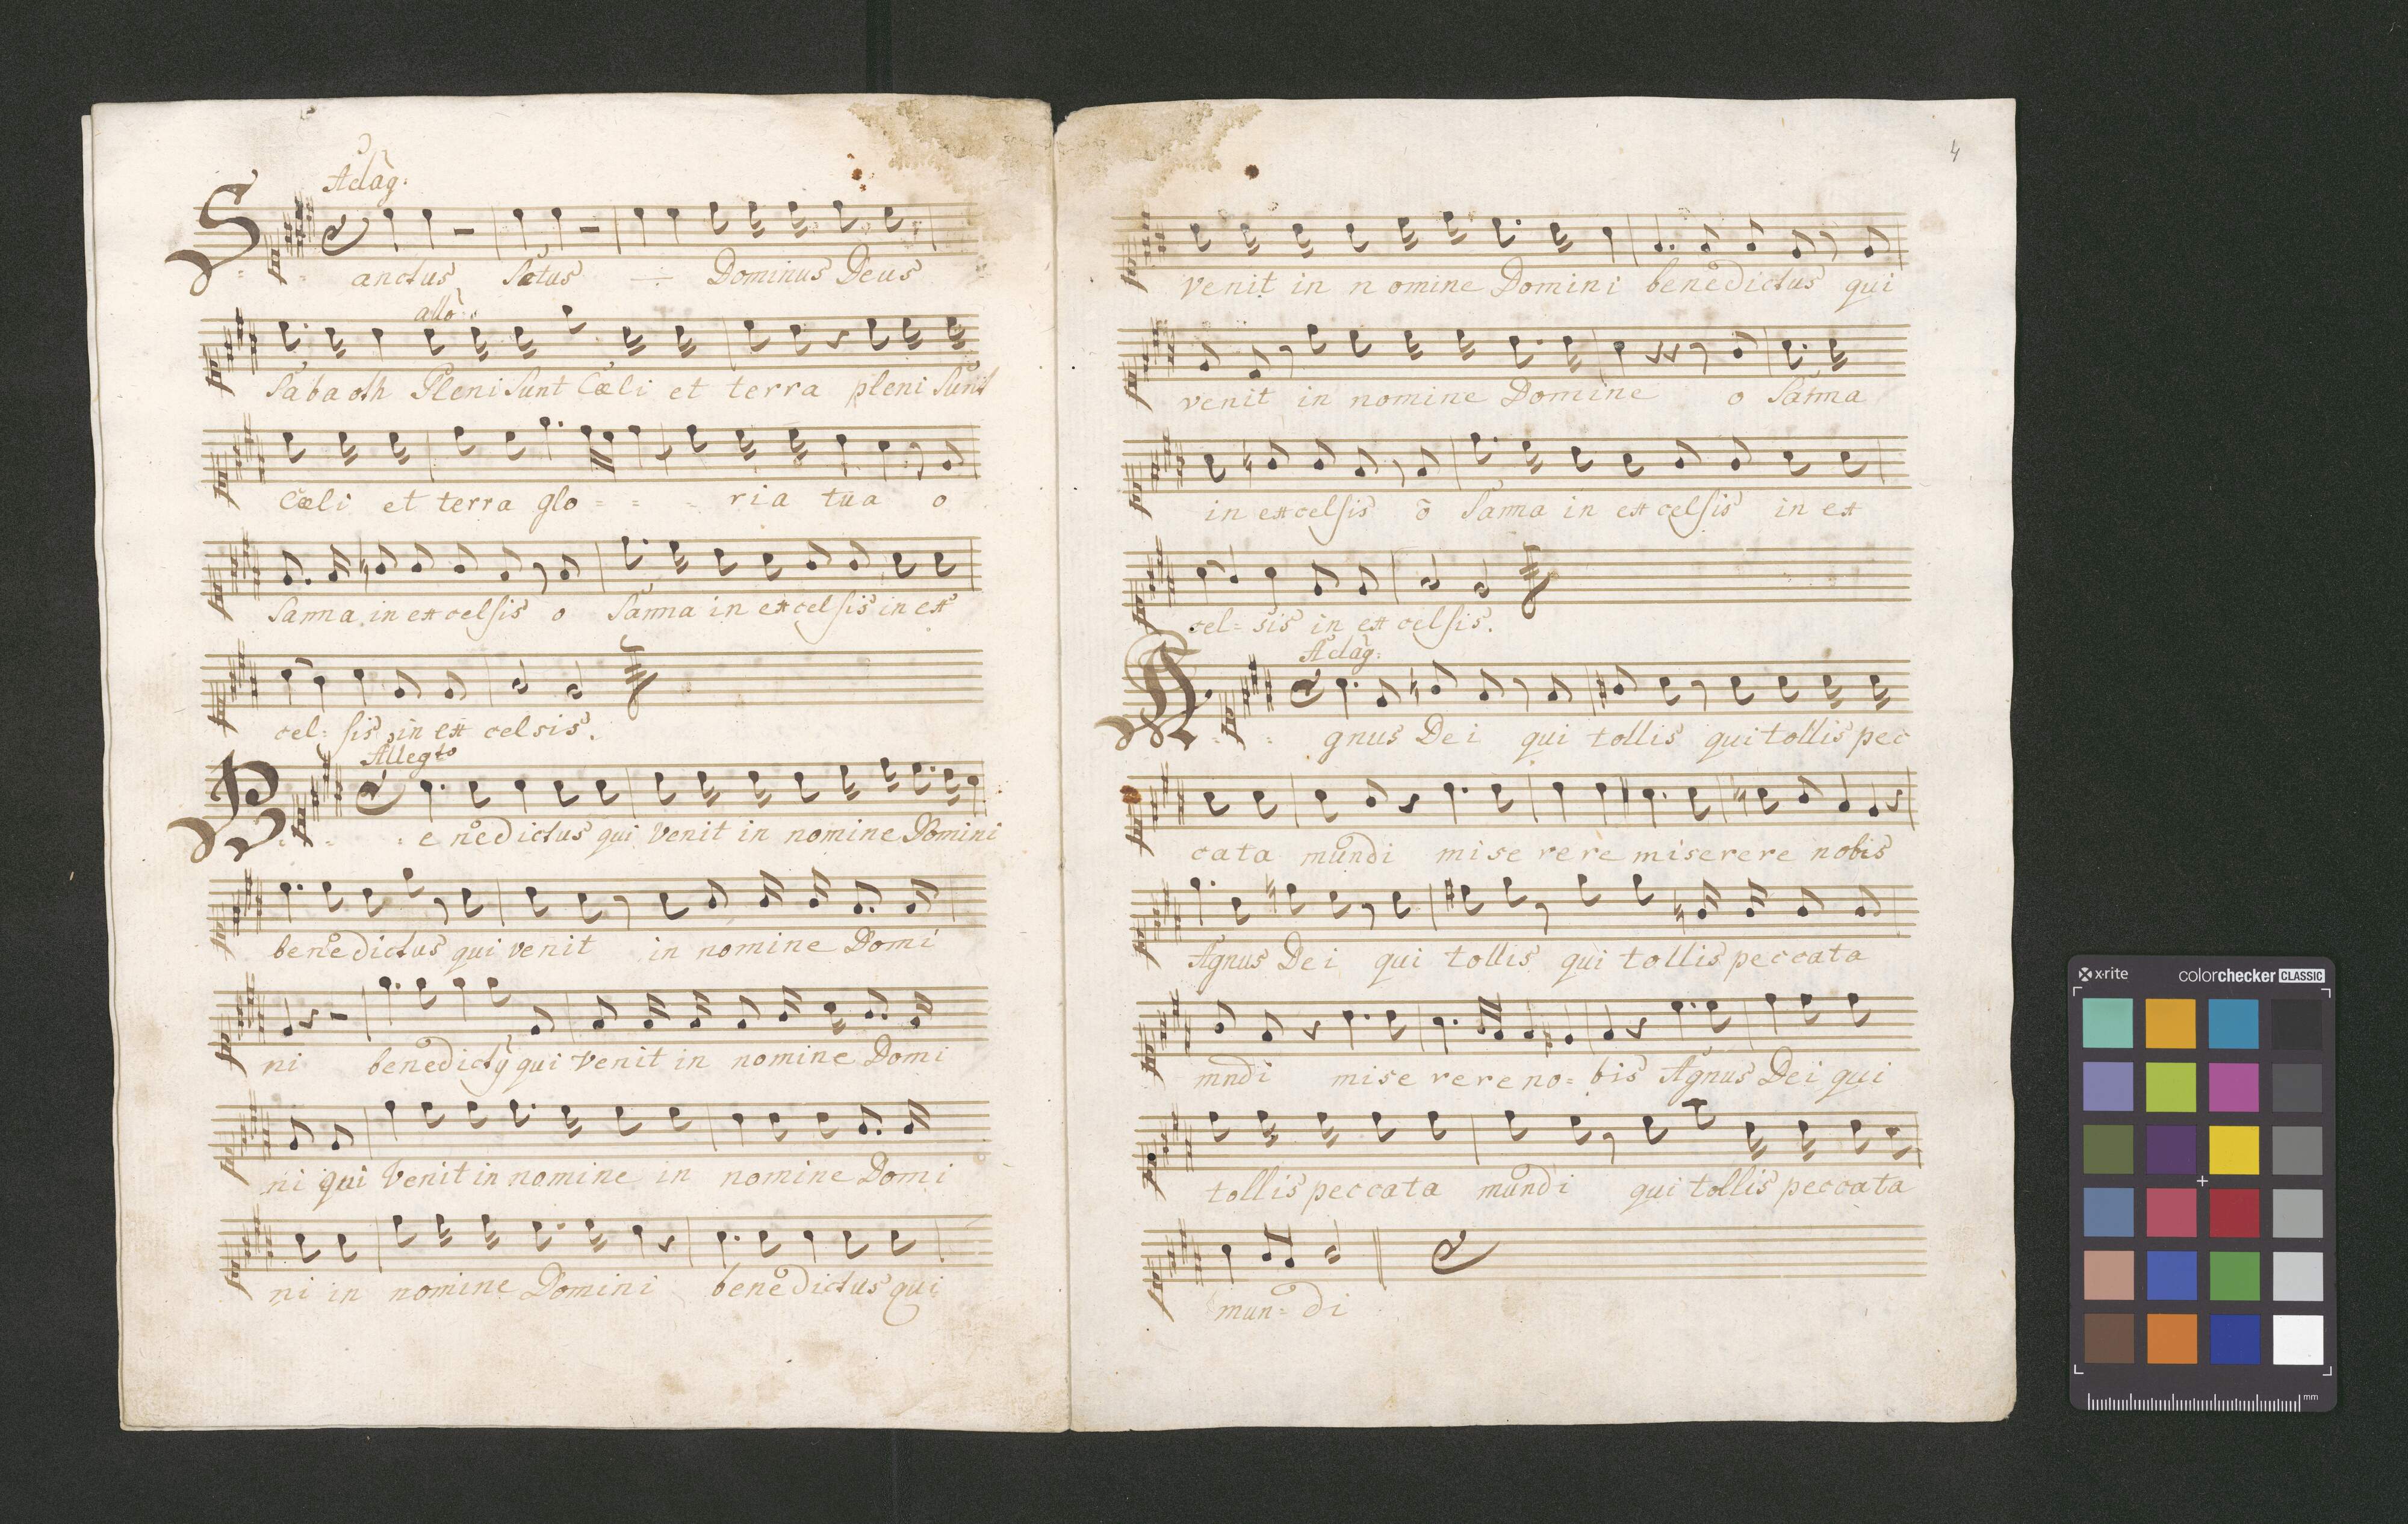 Adàg:
Sanctus Sctus — Dominus Deus
allò
Sabaoth Pleni Sunt Cœli et terra pleni Sunt
Cœli et terra glo - - - ria tua o
Sanna in excelsis o Sanna in excelsis in ex
cel- sis in ex celsis.
Allegro
Be nedictus qui venit in nomine Domini
benedictus qui venit in nomine Domi
ni benedictÿ qui venit in nomine Domi
ni qui venit in nomine in nomine Domi
ni in nomine Domini benedictus qui
4
venit in nomine Domini benedictus qui
venit in nomine Domine o Sanna
in excelsis o Sanna in excelsis in ex
cel- sis in ex celsis.
Adàg:
Agnus Dei qui tollis qui tollis pec
cata mundi mise rere miserere nobis
Agnus Dei qui tollis qui tollis peccata
mndi mise rere no- bis Agnus Dei qui
tollis peccata mundi qui tollis peccata
mun- di
x-rite colorchecker CLASSIC
mm